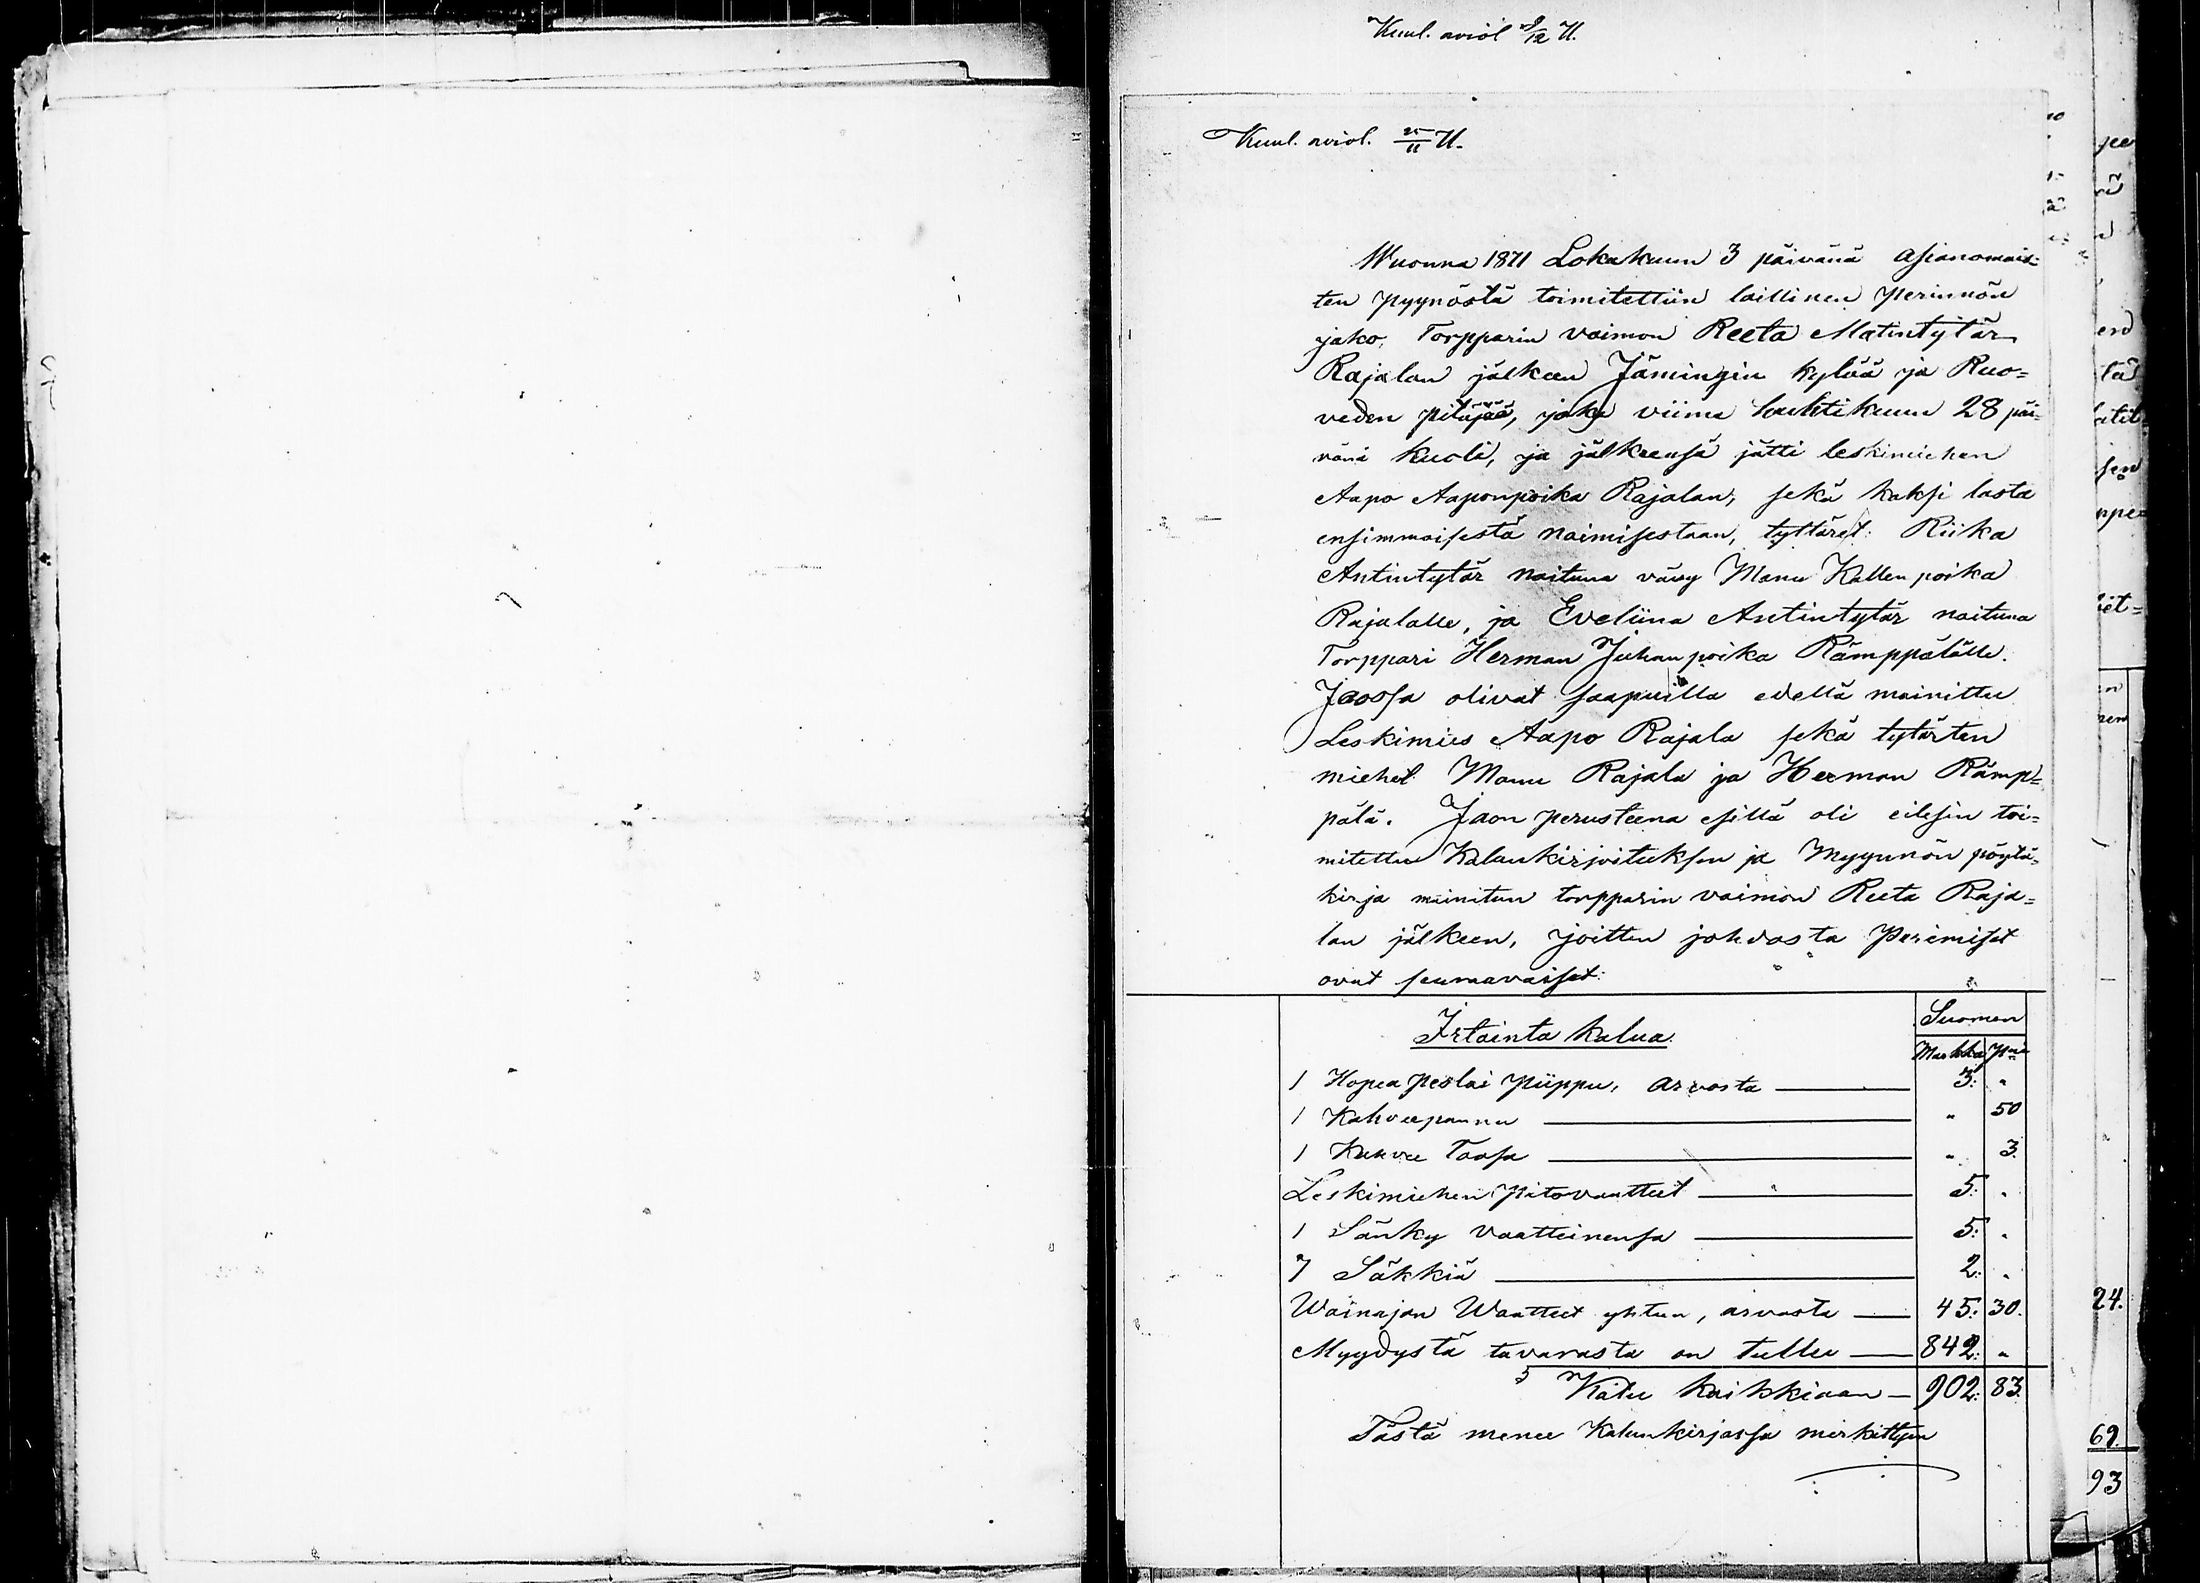 Kuul. aviol 9/12 U.
Kuul. aviol. 25/11 U.
Wuonna 1871 Lokakuun 3 päivänä Asianomais=
ten pyynöstä toimitettiin laillinen perinnön
jako, Torpparin vaimon Reeta Matintytär
Rajalan jälkeen Jämingin kylää ja Ruo=
veden pitäjää, joka viime huhtikuun 28 päi=
vänä kuoli, ja jälkeensä jätti leskimiehen
Aapo Aaponpoika Rajalan, sekä kaksi lasta
ensimmäisestä naimisestaan, tyttäret: Riika
Antintytär naituna vävy Manu Kallenpoika
Rajalalle, ja Eveliina Antintytär naituna
Torppari Herman Juhanpoika Rämppälälle.
Jaossa olivat saapuilla edellä mainittu
Leskimies Aapo Rajala sekä tytärten
miehet Manu Rajala ja Herman Rämp=
pälä. Jaon perusteena esillä oli eilesin toi=
mitettu Kalunkirjoituksen ja Myynnön pöytä=
kirja mainitun torpparin vaimon Reeta Raja=
lan jälkeen, joitten johdosta Perimiset
ovat seuraavaiset:
Suomen
Irtainta kalua. Markka Pni
1 Hopea peslai piippu, arvosta 3. "
1 Kahveepannu " 50
1 Kahvee Toosa " 3.
Leskimiehen pitovaatteet 5: "
1 Sänky vaatteinensa 5: "
7 Säkkiä 2: "
Wainajan Waatteet yhteen, arvosta 45: 30.
Myydystä tavarasta on tullu 842: "
Kätu kaikkiaan 902: 83.
Tästä menee Kalunkirjassa merkittyn
24.
69.
93